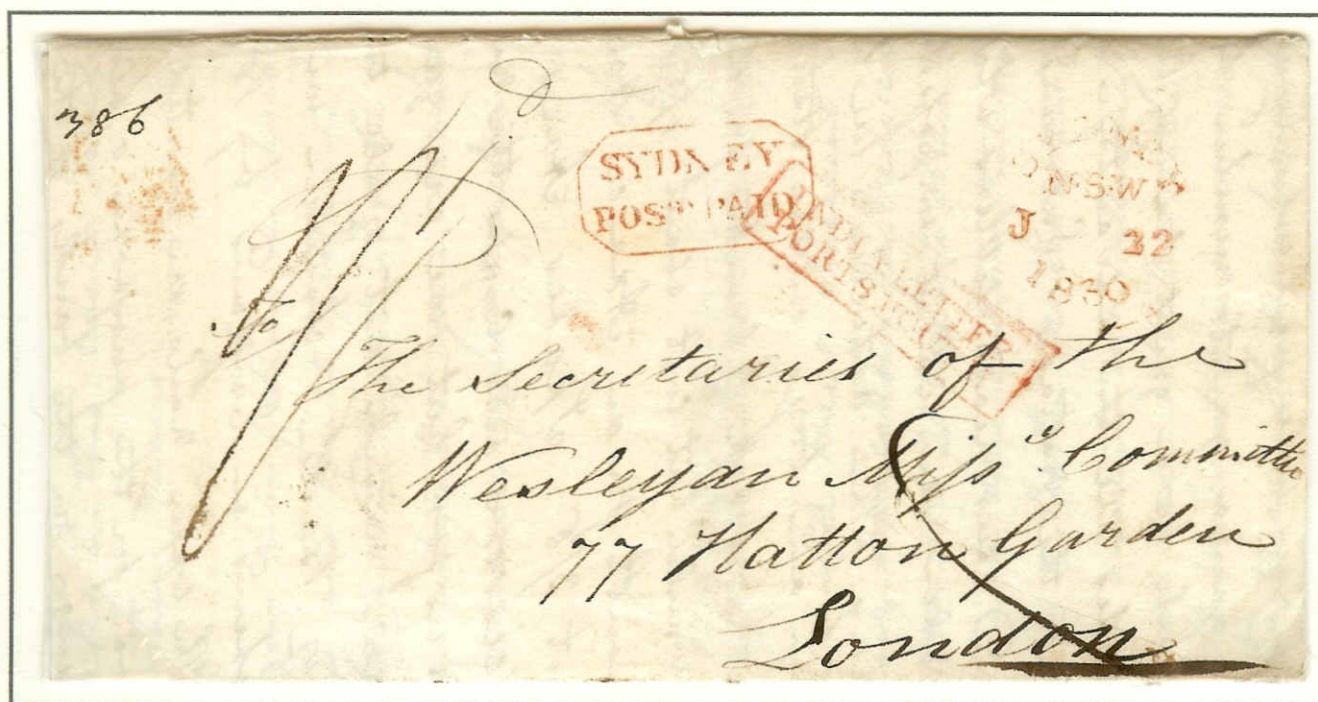 386
SYDNEY
POST PAID
N.S.W
J 22
1830
INDIA LETTER
PORTSMOUTH
To
The Secretaries of the
Wesleyan Missy Committee
77 Hatton Garden
London